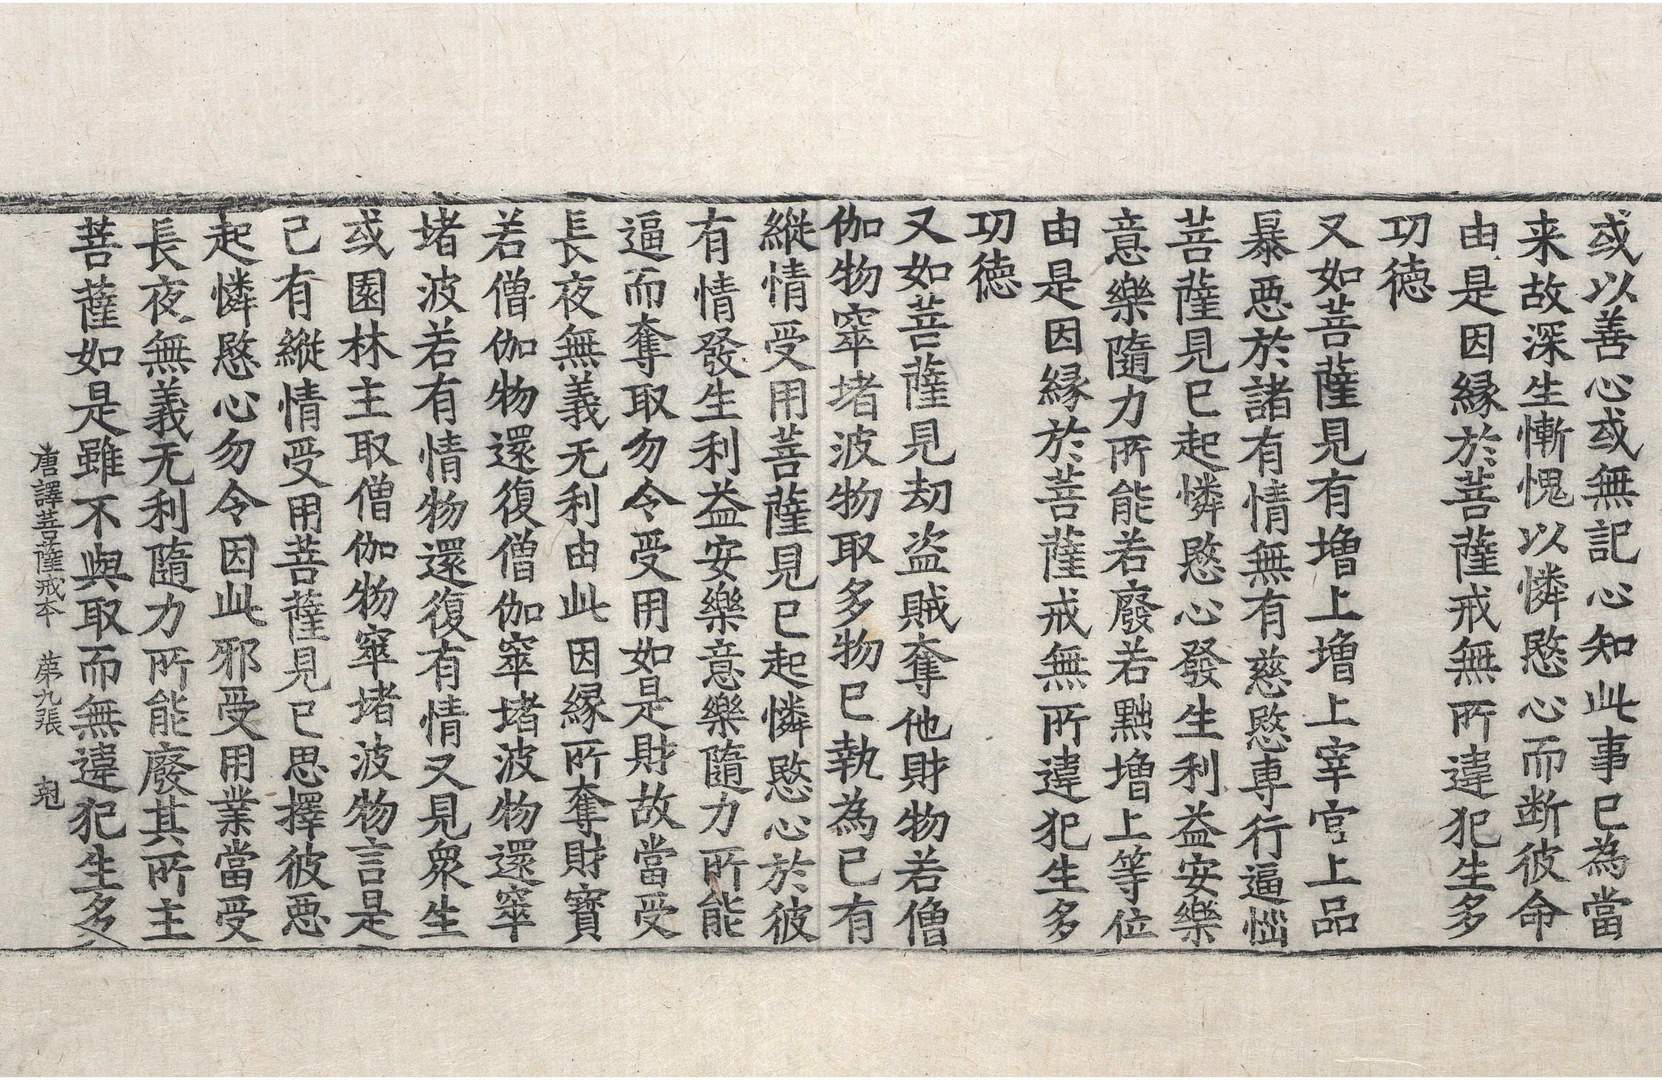 或以善心或無記心知此事已為當
来故深生慚愧以憐愍心而断彼命
由是因縁於菩薩戒無所違犯生多
功徳
又如菩薩見有増上増上宰官上品
暴悪於諸有情無有慈愍専行逼惱
菩薩見已起憐愍心發生利益安樂
意樂隨力所能若廢若黜増上等位
由是因縁於菩薩戒無所違犯生多
功徳
又如菩薩見劫盗賊奪他財物若僧
伽物窣堵波物取多物已執為已有
縦情受用菩薩見已起憐愍心於彼
有情發生利益安樂意樂隨力所能
逼而奪取勿令受用如是財故當受
長夜無義无利由此因縁所奪財寳
若僧伽物還復僧伽窣堵波物還窣
堵波若有情物還復有情又見衆生
或園林主取僧伽物窣堵波物言是
己有縦情受用菩薩見已思擇彼悪
起憐愍心勿令因此邪受用業當受
長夜無義无利隨力所能廢其所主
菩薩如是雖不與取而無違犯生多
唐譯菩薩戒本 第九張 剋